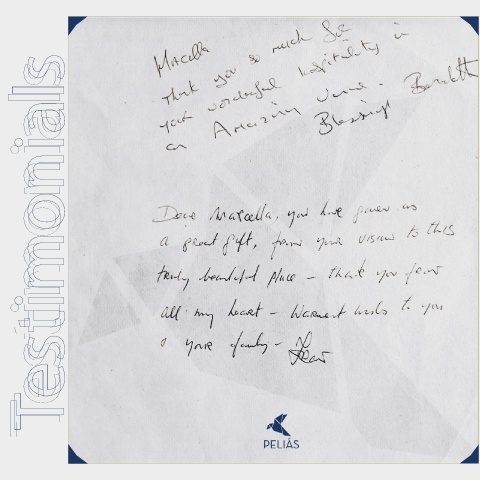 Testimonials
Marcella
Thank you so much for
your wonderful hospitality in
an Amazing venue.
Blessings
Dear Marcella, you have given us
a great gift, from your vision to this
truly beautiful place - thank you from
all my heart - warmest wishes to you
& your family -
PELIÁS